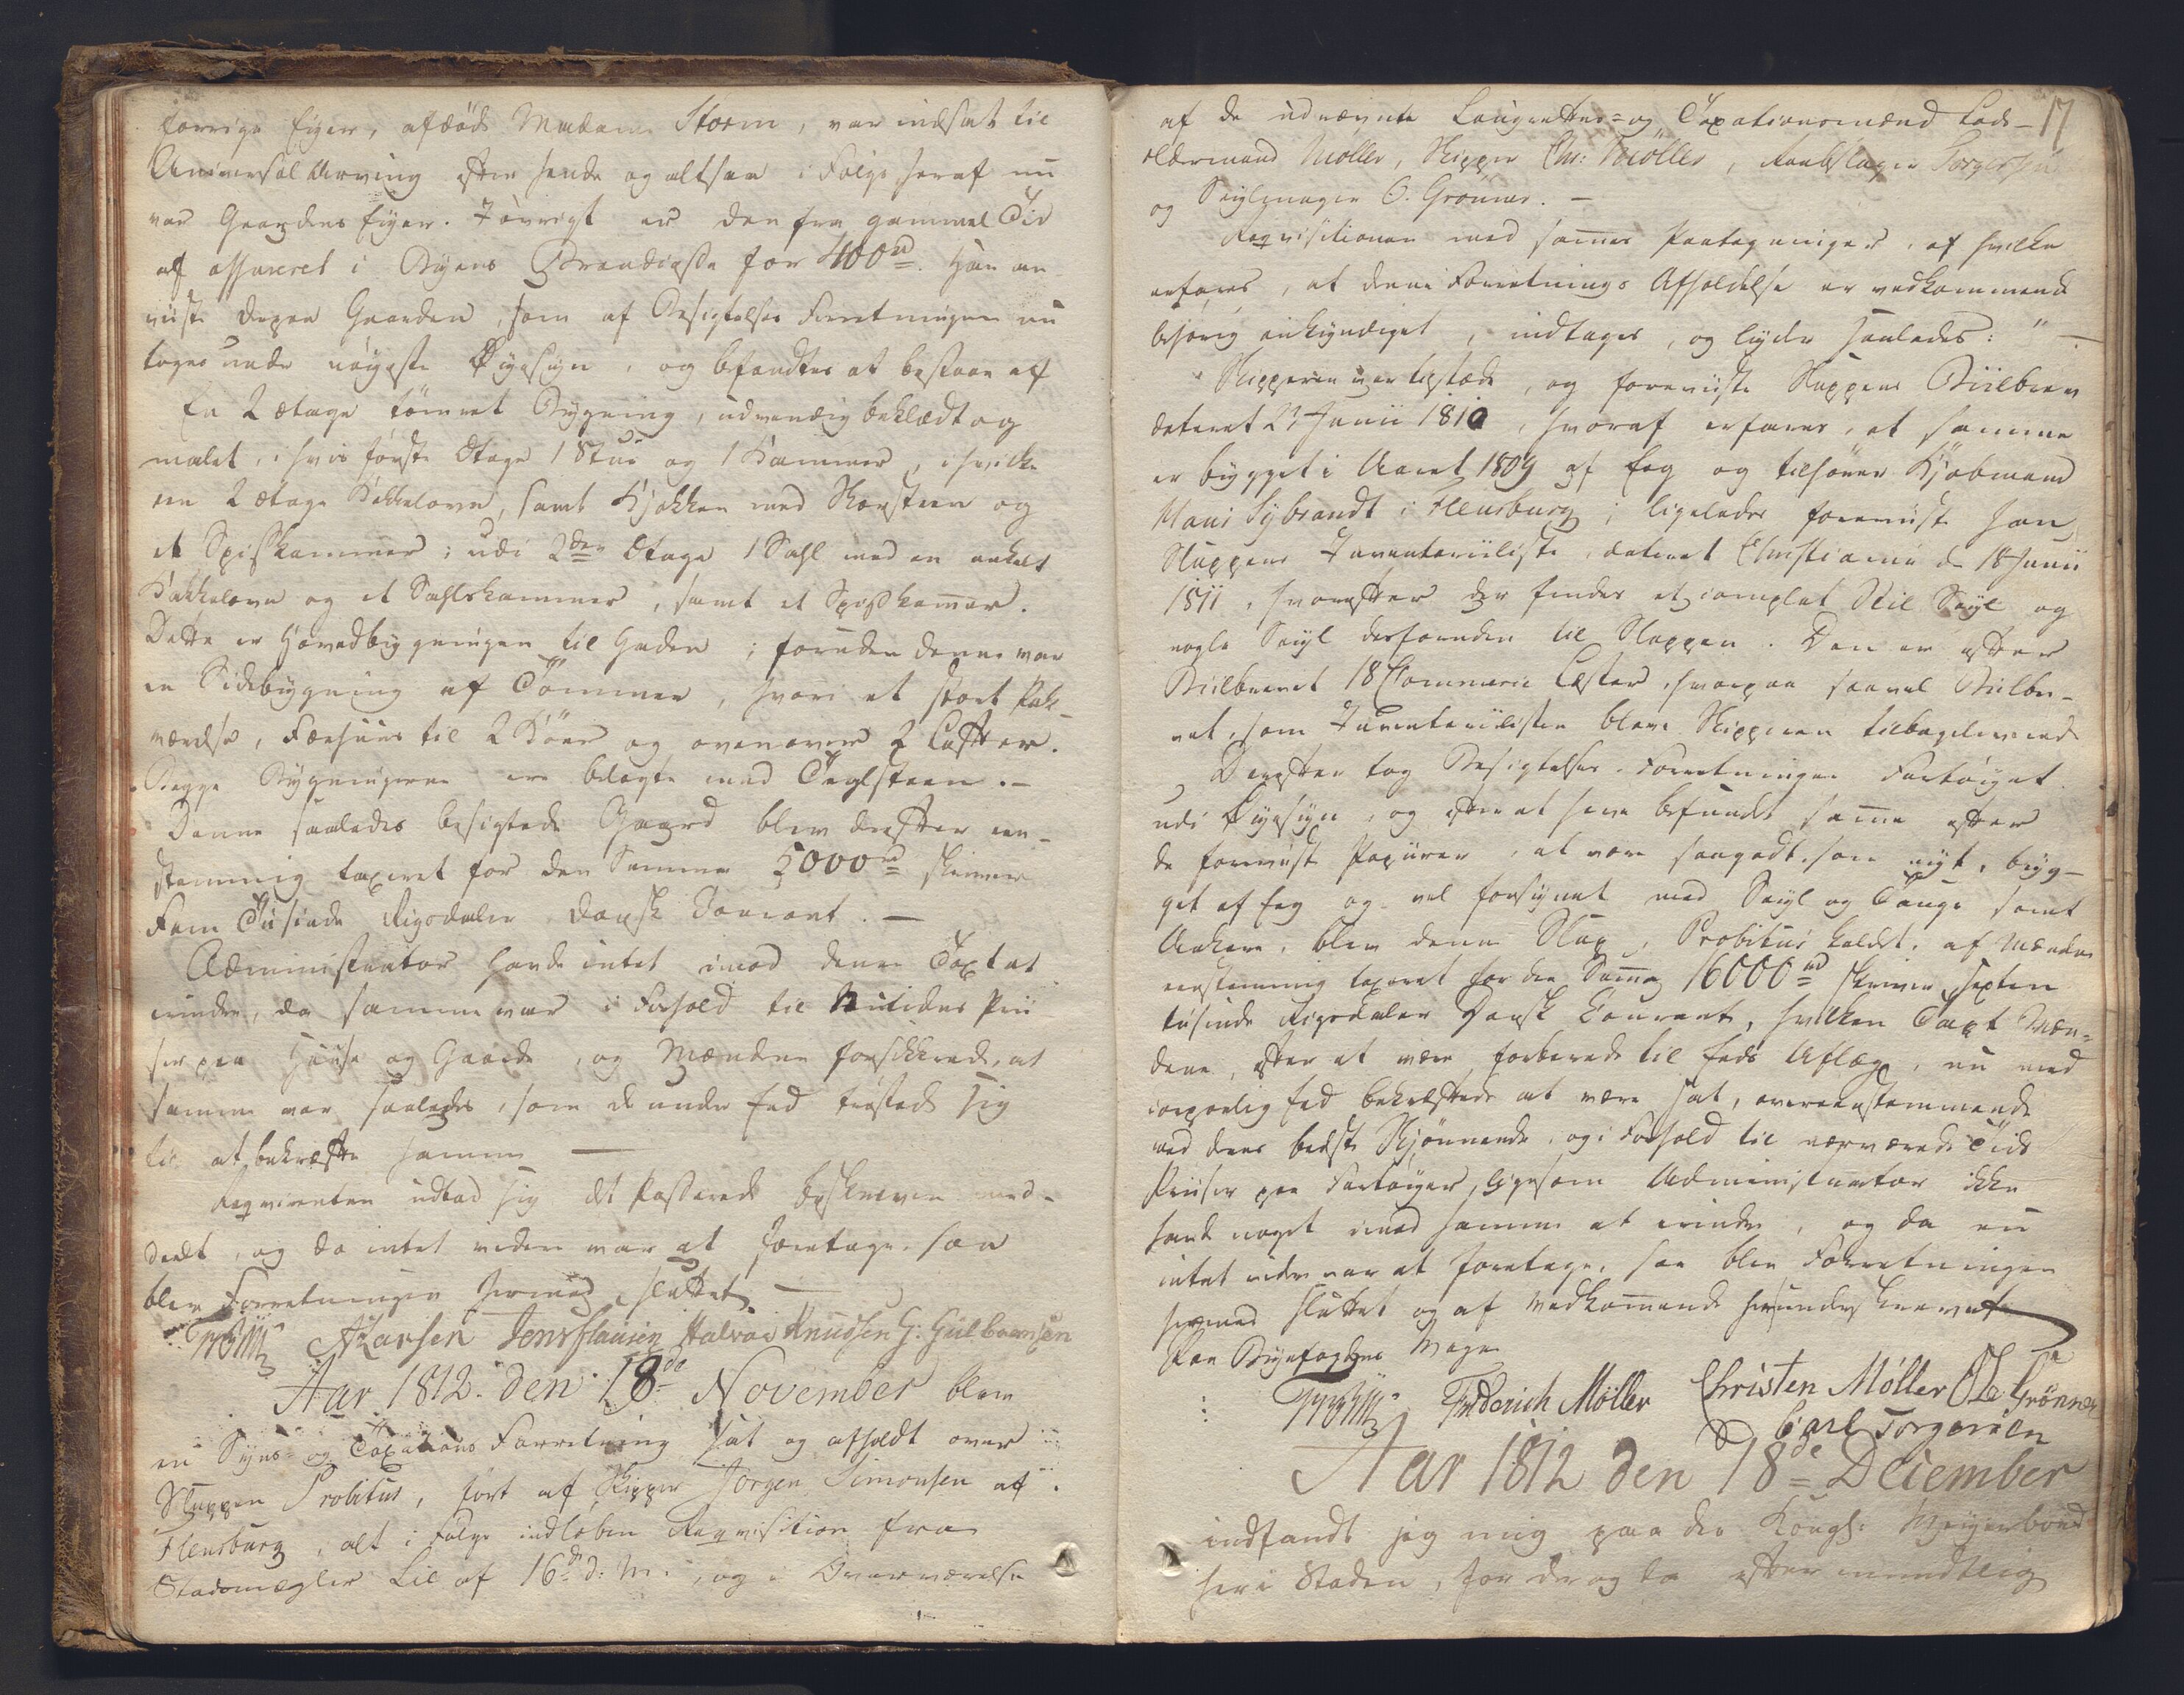 forrige Eyer, afdöde Madame Storm, var indsat til
Universal Arving efter hende og altsaa i Følge heraf nu
var Gaardens Eyer. I øvrigt er den fra gammel Tid
af assureret i Byens Brandcasse for 400 rd. Han an-
viiste derpaa Gaarden, som af Besigtelses Forretningen nu
toges under nöyeste Øyesyn, og befandtes at bestaae af
En 2 etage tömret Bygning, udvendig beklædt og
malet, i hvis første Etage 1 Stue og 1 Kammer, i hvilke
en 2 etage Kakkelovn, samt Kjøkken med Skorsteen og
et Spisskammer; udi 2den Etage 1 Sahl med en enkelt
Kakkelovn og et Sahlskammer, samt et Spisskamer.
Dette er Hovedbygningen til Gaden; foruden denne var
en Sidebygning af Tömmer, hvori et stort Pak-
værelse, Fæhuus til 2 Köer og ovenover 2 Lofter.
Begge Bygningerne ere belagte med Teglsteen. –
Denne saaledes besigtede Gaard blev derefter een-
stemmig taxeret for den Summa 5000 rd skriver
Fem Tusinde Rigsdaler Dansk Courant. –
Administrator havde intet imod denne Taxt at
erindre, da samme var i Forhold til Nutidens Prii-
ser paa Huuse og Gaarde, og Mændene forsikkrede, at
samme var saaledes, som de under Eed trøstede sig
til at bekræfte samme —
Reqvirenten udbad sig det Passerede beskreven med-
deelt, og da intet videre var at foretage, saa
blev Forretningen hermed sluttet —
A Larsen Jens Clausen Halvor Knudsen G: Gulbransen
Aar 1812. den 18de November blev
en Syns- og Taxations Forretning sat og afholdt over
Sluppen Probitus, ført af Skipper Jörgen Simonsen af
Flensburg, alt i Følge indløben Reqvisition fra
Stadsmægler Lie af 16de d: M:, og i Overværelse
17
af de udnævnte Laugrettes- og Taxationsmænd Lods-
oldermand Møller, Skipper Chr: Møller, Reebslager Torgersen
og Seylmager O. Grönner. –
Reqvisitionen med sammes Paategninger, af hvilke
erfares, at denne Forretnings Afholdelse er vedkommende
behørig enkyndiget, indtages, og lyder saaledes: " –
Skipperen var tilstæde, og foreviiste Sluppens Biilbrev
dateret 27 Junii 1810, hvoraf erfares, at samme
er bygget i Aaret 1809 af Eeg og tilhører Kjøbmand
Hans Sybrandt i Flensburg; ligeledes foreviiste han
Sluppens Inventariiliste, dateret Christiania d. 18 Junii
1811, hvorefter der findes et complet Stil Seyl og
nogle Seyl desforuden til Sluppen. Den er efter
Biilbrevet 18 Commerce Læster, hvorpaa saavel Biilbre-
vet, som Inventariilisten blev Skipperen tilbageleverede
Derefter tog Besigtelses-Forretningen Fartøyet
udi Øyesyn, og efter at have befundet samme efter
de foreviiste Papiirer, at være saagodt som nyt, byg-
get af Eeg og vel forsynet med Seyl og Touge samt
Ankere, blev denne Slup, Probitus kaldet, af Mændene
eenstemmig taxeret for den Summa 16000 rd skriver Sexten
tusinde Rigsdaler Dansk Courant, hvilken Taxt Mæn-
dene, efter at være forberede til Eeds Aflæg, nu med
corporlig Eed bekræftede at være sat, overeenstemmende
med deres bedste Skjønnende, og i Forhold til nærværende Tids
Priiser paa Fartøyer, ligesom Administrator ikke
havde noget imod samme at erindre, og da nu
intet videre var at foretage, saa blev Forretningen
hermed sluttet og af Vedkommende herunderskrevet
Paa Byefogdens Vegne
Friderich Möller Christen Möller OL: Grönner
Carl Torgersen
Aar 1812 den 18de December
indfandt jeg mig paa den Kongl:
her i Staden, for der og da efter mundtlig